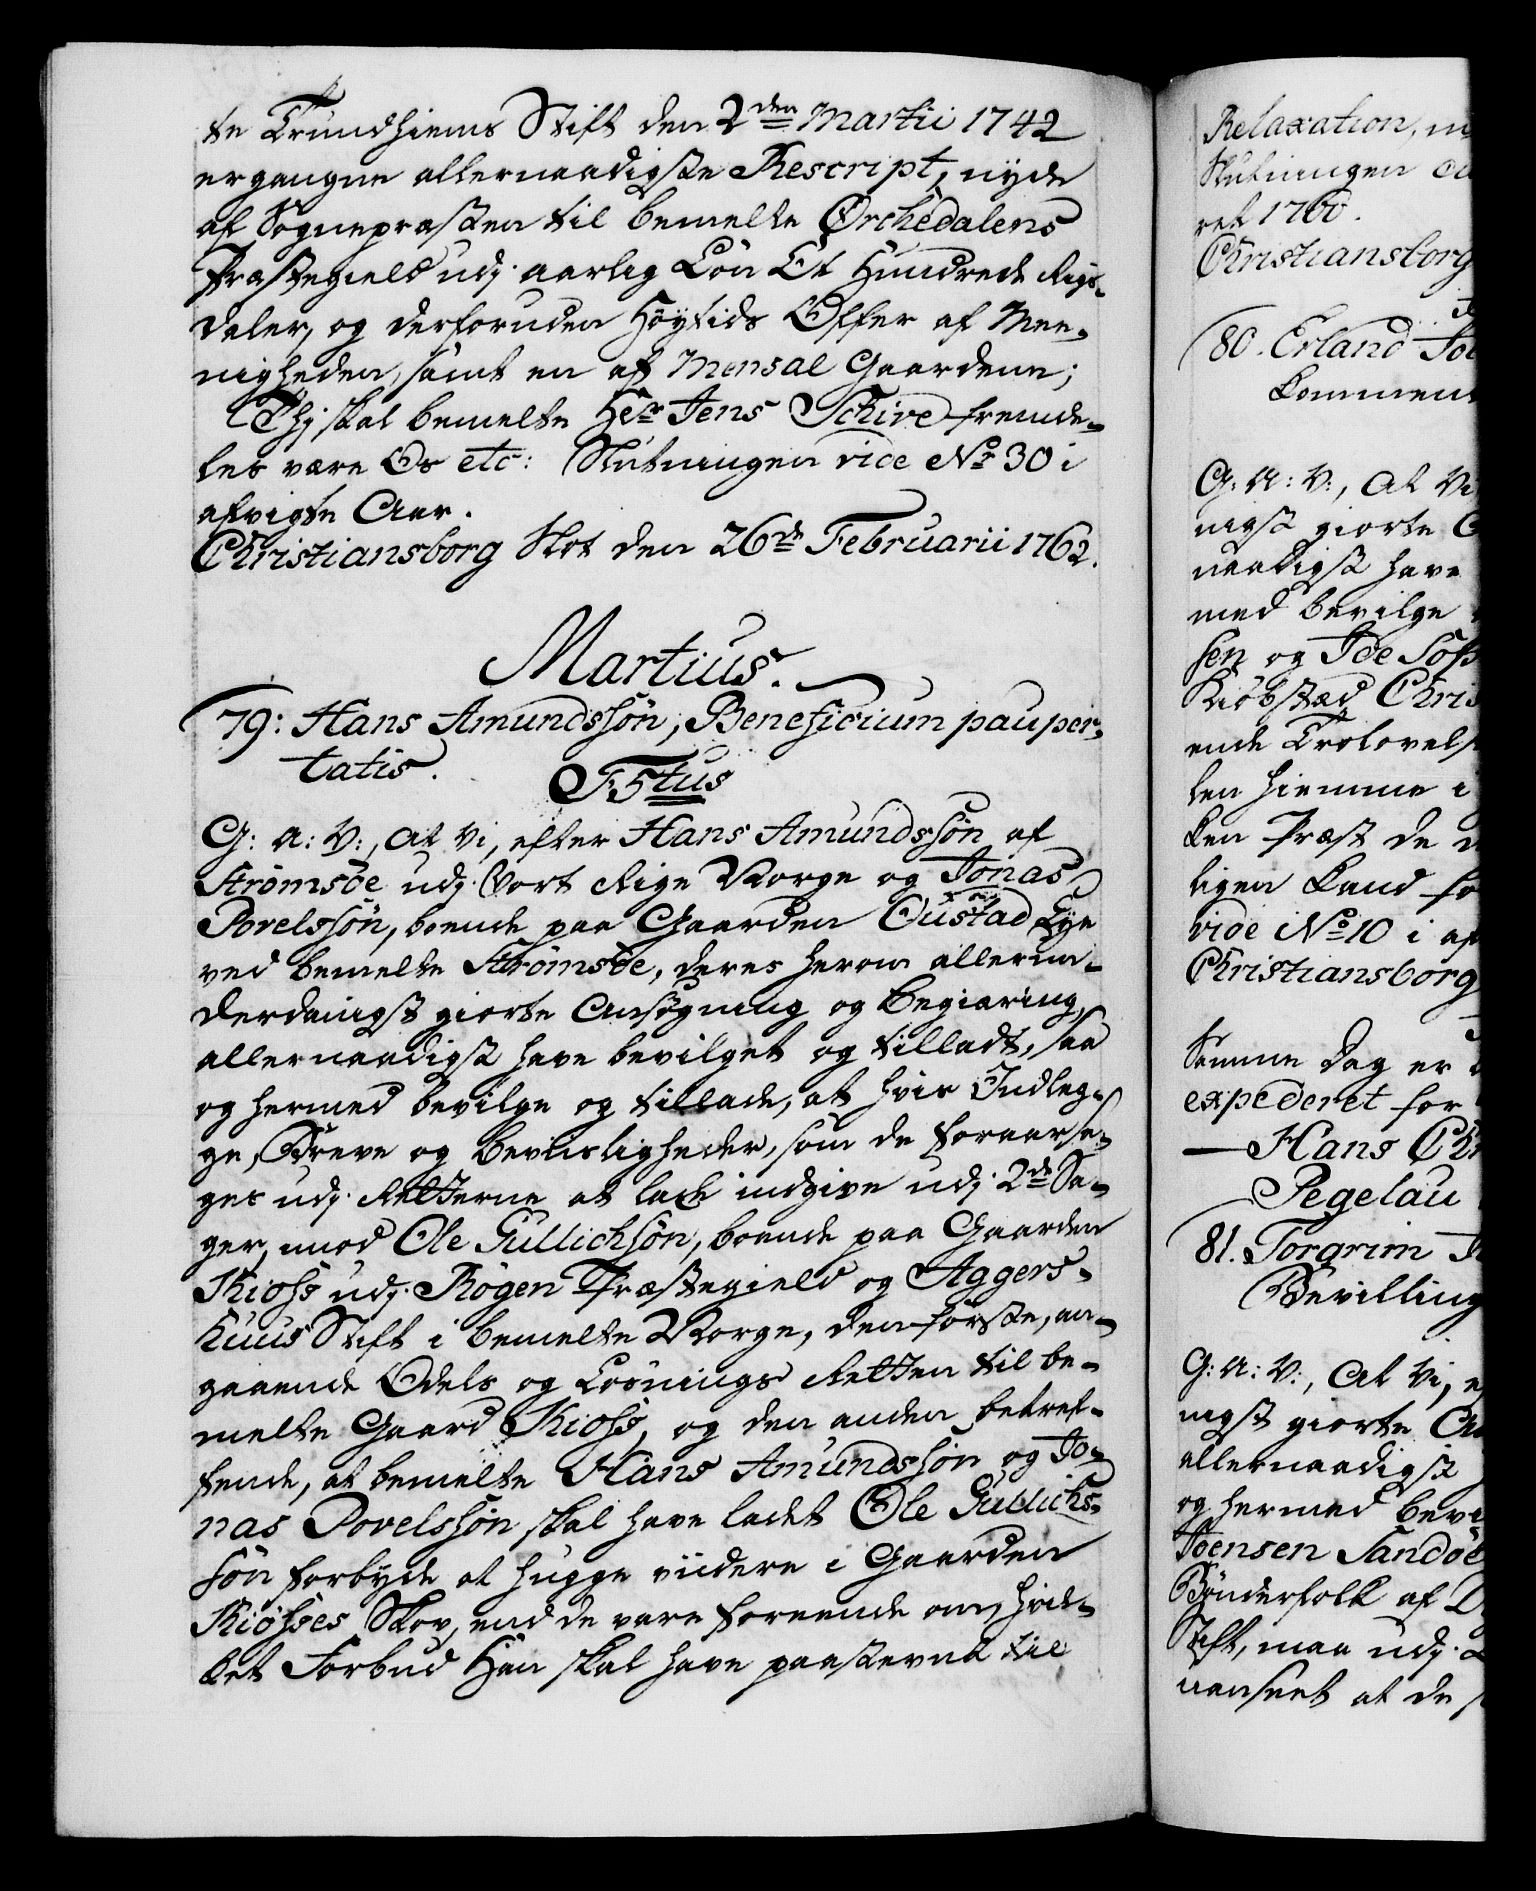 te Trundhiems Stift den 2den Martii 1742
ergangne allernaadigste Rescript, nyde
af Sognepræsten til bemelte Ørchedalens
Præstegield udj aarlig Løn Et Hundrede Rigs-
daler, og derforuden Höytids Offer af Mee-
nigheden, samt en af Mensal Gaardene;
Thj skal bemelte Hr Jens Schive fremde-
les være Os etc: Slutningen vide No 30 i
afvigte Aar.
Christiansborg Slot den 26de Februarii 1762.
Martius.
79: Hans Amundssön, Beneficium pauper-
tatis.
F5tus
G: A: V:, At Vi, efter Hans Amundssön af
Strömsöe udj Vort Rige Norge og Jonas
Povelssön, boende paa Gaarden Oustad Eye
ved bemelte Strömsöe, deres herom allerun-
derdanigst giorte Ansögning og Begiæring,
allernaadigst have bevilget og tilladt, saa
og hermed bevilge og tillade, at hvis Indleg-
ge, Breve og Beviisligheder, som de foraarsa-
ges udj Retterne at lade indgive udj 2de Sa-
ger, imod Ole Gullichsön, boende paa Gaarden
Kioss udj Rögen Præstegield og Aggers-
huus Stift i bemelte Norge, den förste, an-
gaaende Odels og Lösnings Retten til be-
melte Gaard Kioss, og den anden betref-
fende, at bemelte Hans Amundssön og Jo-
nas Povelssön skal have ladet Ole Gullichs-
sön forbyde at hugge viidere i Gaarden
Kiösses Skov, end de vare foreende om, hvil-
ket Forbud Han skal have paastevnt til
Relaxation,
Slutningen
ret 1760.
Christiansborg
80. Erland
Kommen
G: A: V:, At Vi
nigst giorte
naadigst have
med bevilge
sen og Ide
Kiöbstæd Chris
ende Trolovels
len hiemme i
ken Præst de
ligen Land
vide No 10 i af
Christiansborg
Samme Dag er
expederet for
— Hans Ch
Pegelau
81. Torgrim
Bevilling
G: A: V:, At Vi, e
nigst giorte An
allernaadigst
og hermed bevi
Joensen Sandöe
Bönderfolk af
Stift, maa udj
uanseet at de